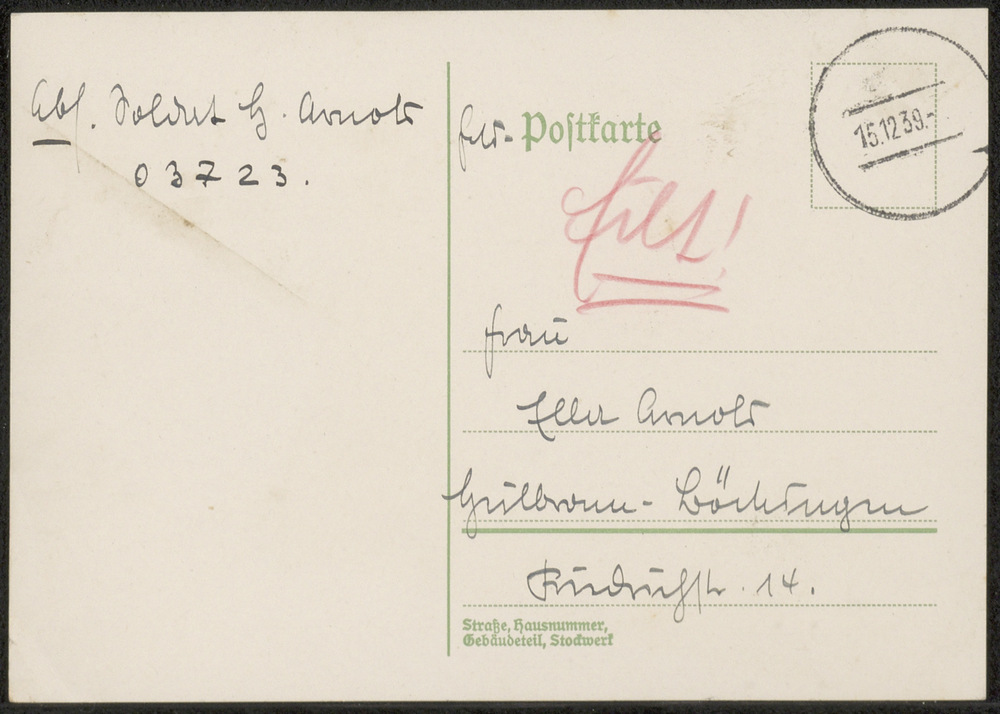 Abs. Soldat H. Arnold
03723.
Feld-Postkarte
15.12.39.-
Feld!
Frau
Ella Arnold
Heilbronn-Böckingen
Friedrichstr. 14.
Straße, Hausnummer,
Gebäudeteil, Stockwerk